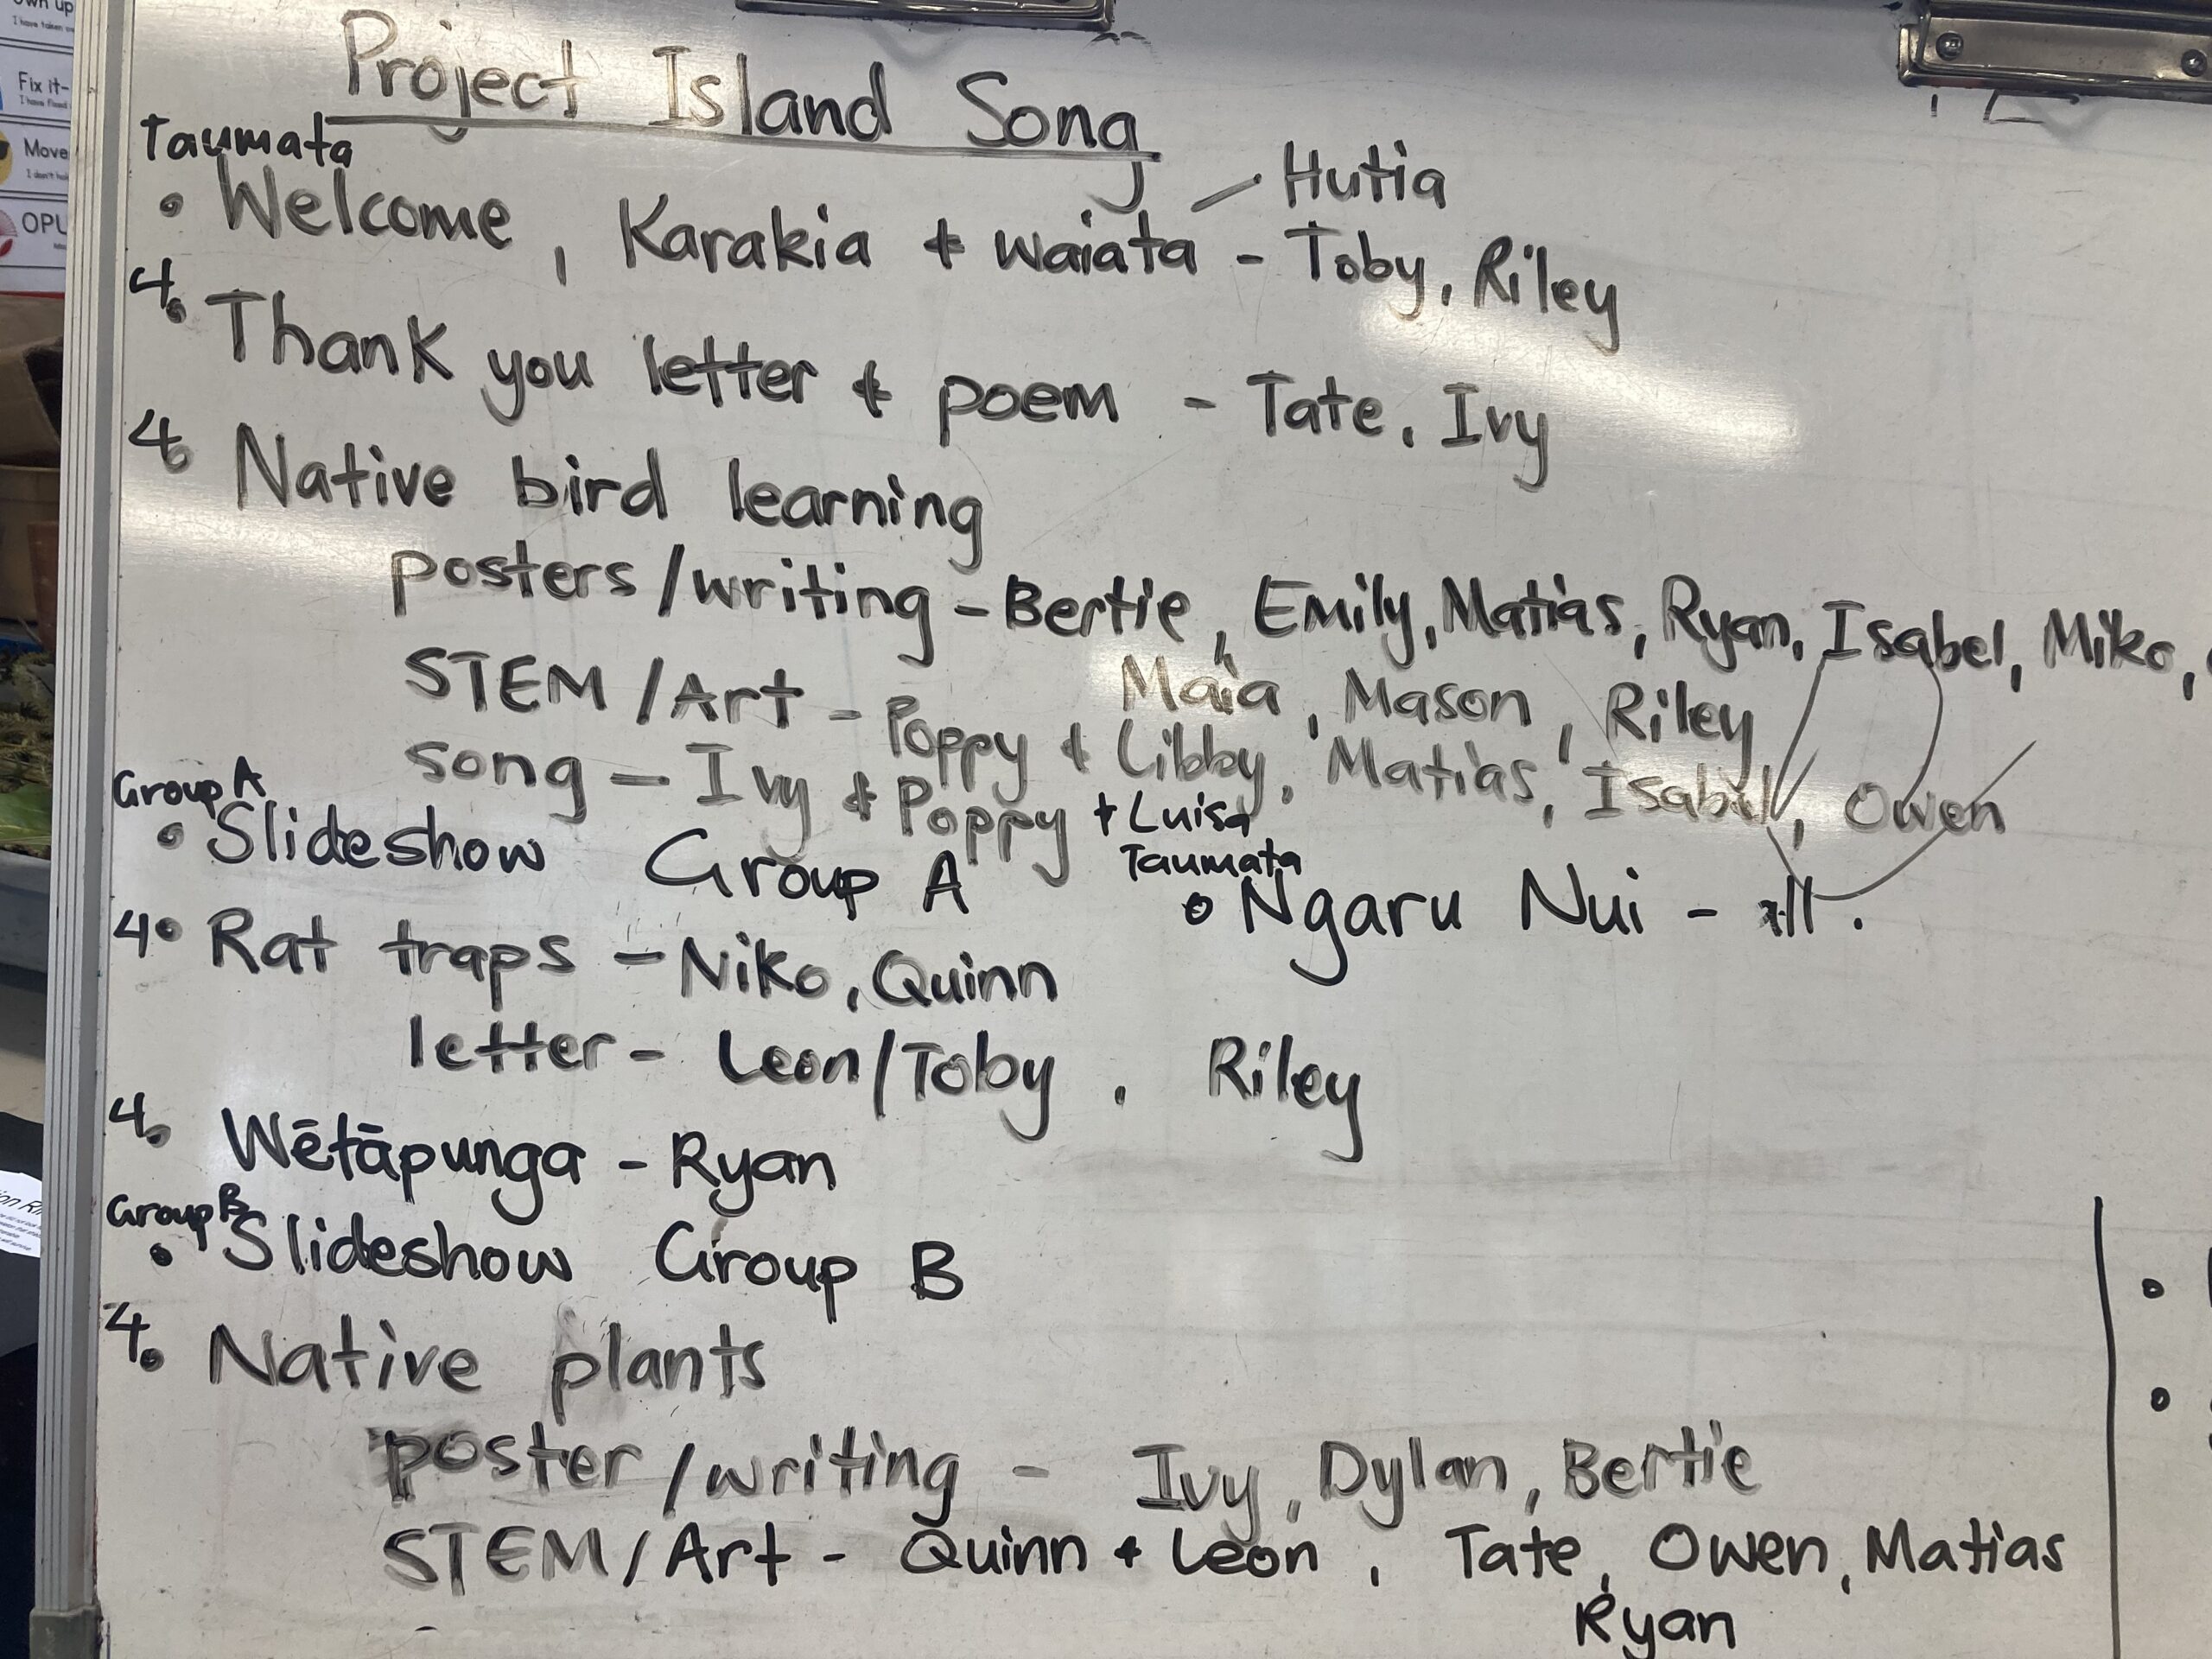 own up
I have taken
Fix it-
I have fixed
Move
I don't
OPU
Project Island Song
Taumata
• Welcome, Karakia + waiata - Toby, Riley
Hutia
4. Thank you letter & poem - Tate, Ivy
4. Native bird learning
posters/writing - Bertie, Emily, Matias, Ryan, Isabel, Miko,
Maia, Mason, Riley
STEM/Art - Poppy & Libby, Matias, Isabel, Owen
song - Ivy & Poppy + Luisa
Group A
• Slideshow Group A
Taumata
• Ngaru Nui - all.
4• Rat traps - Niko, Quinn
letter - Leon/Toby, Riley
4. Wētāpunga - Ryan
Group B
• Slideshow Group B
4. Native plants
poster/writing - Ivy, Dylan, Bertie
STEM/Art - Quinn + Leon, Tate, Owen, Matias
Ryan